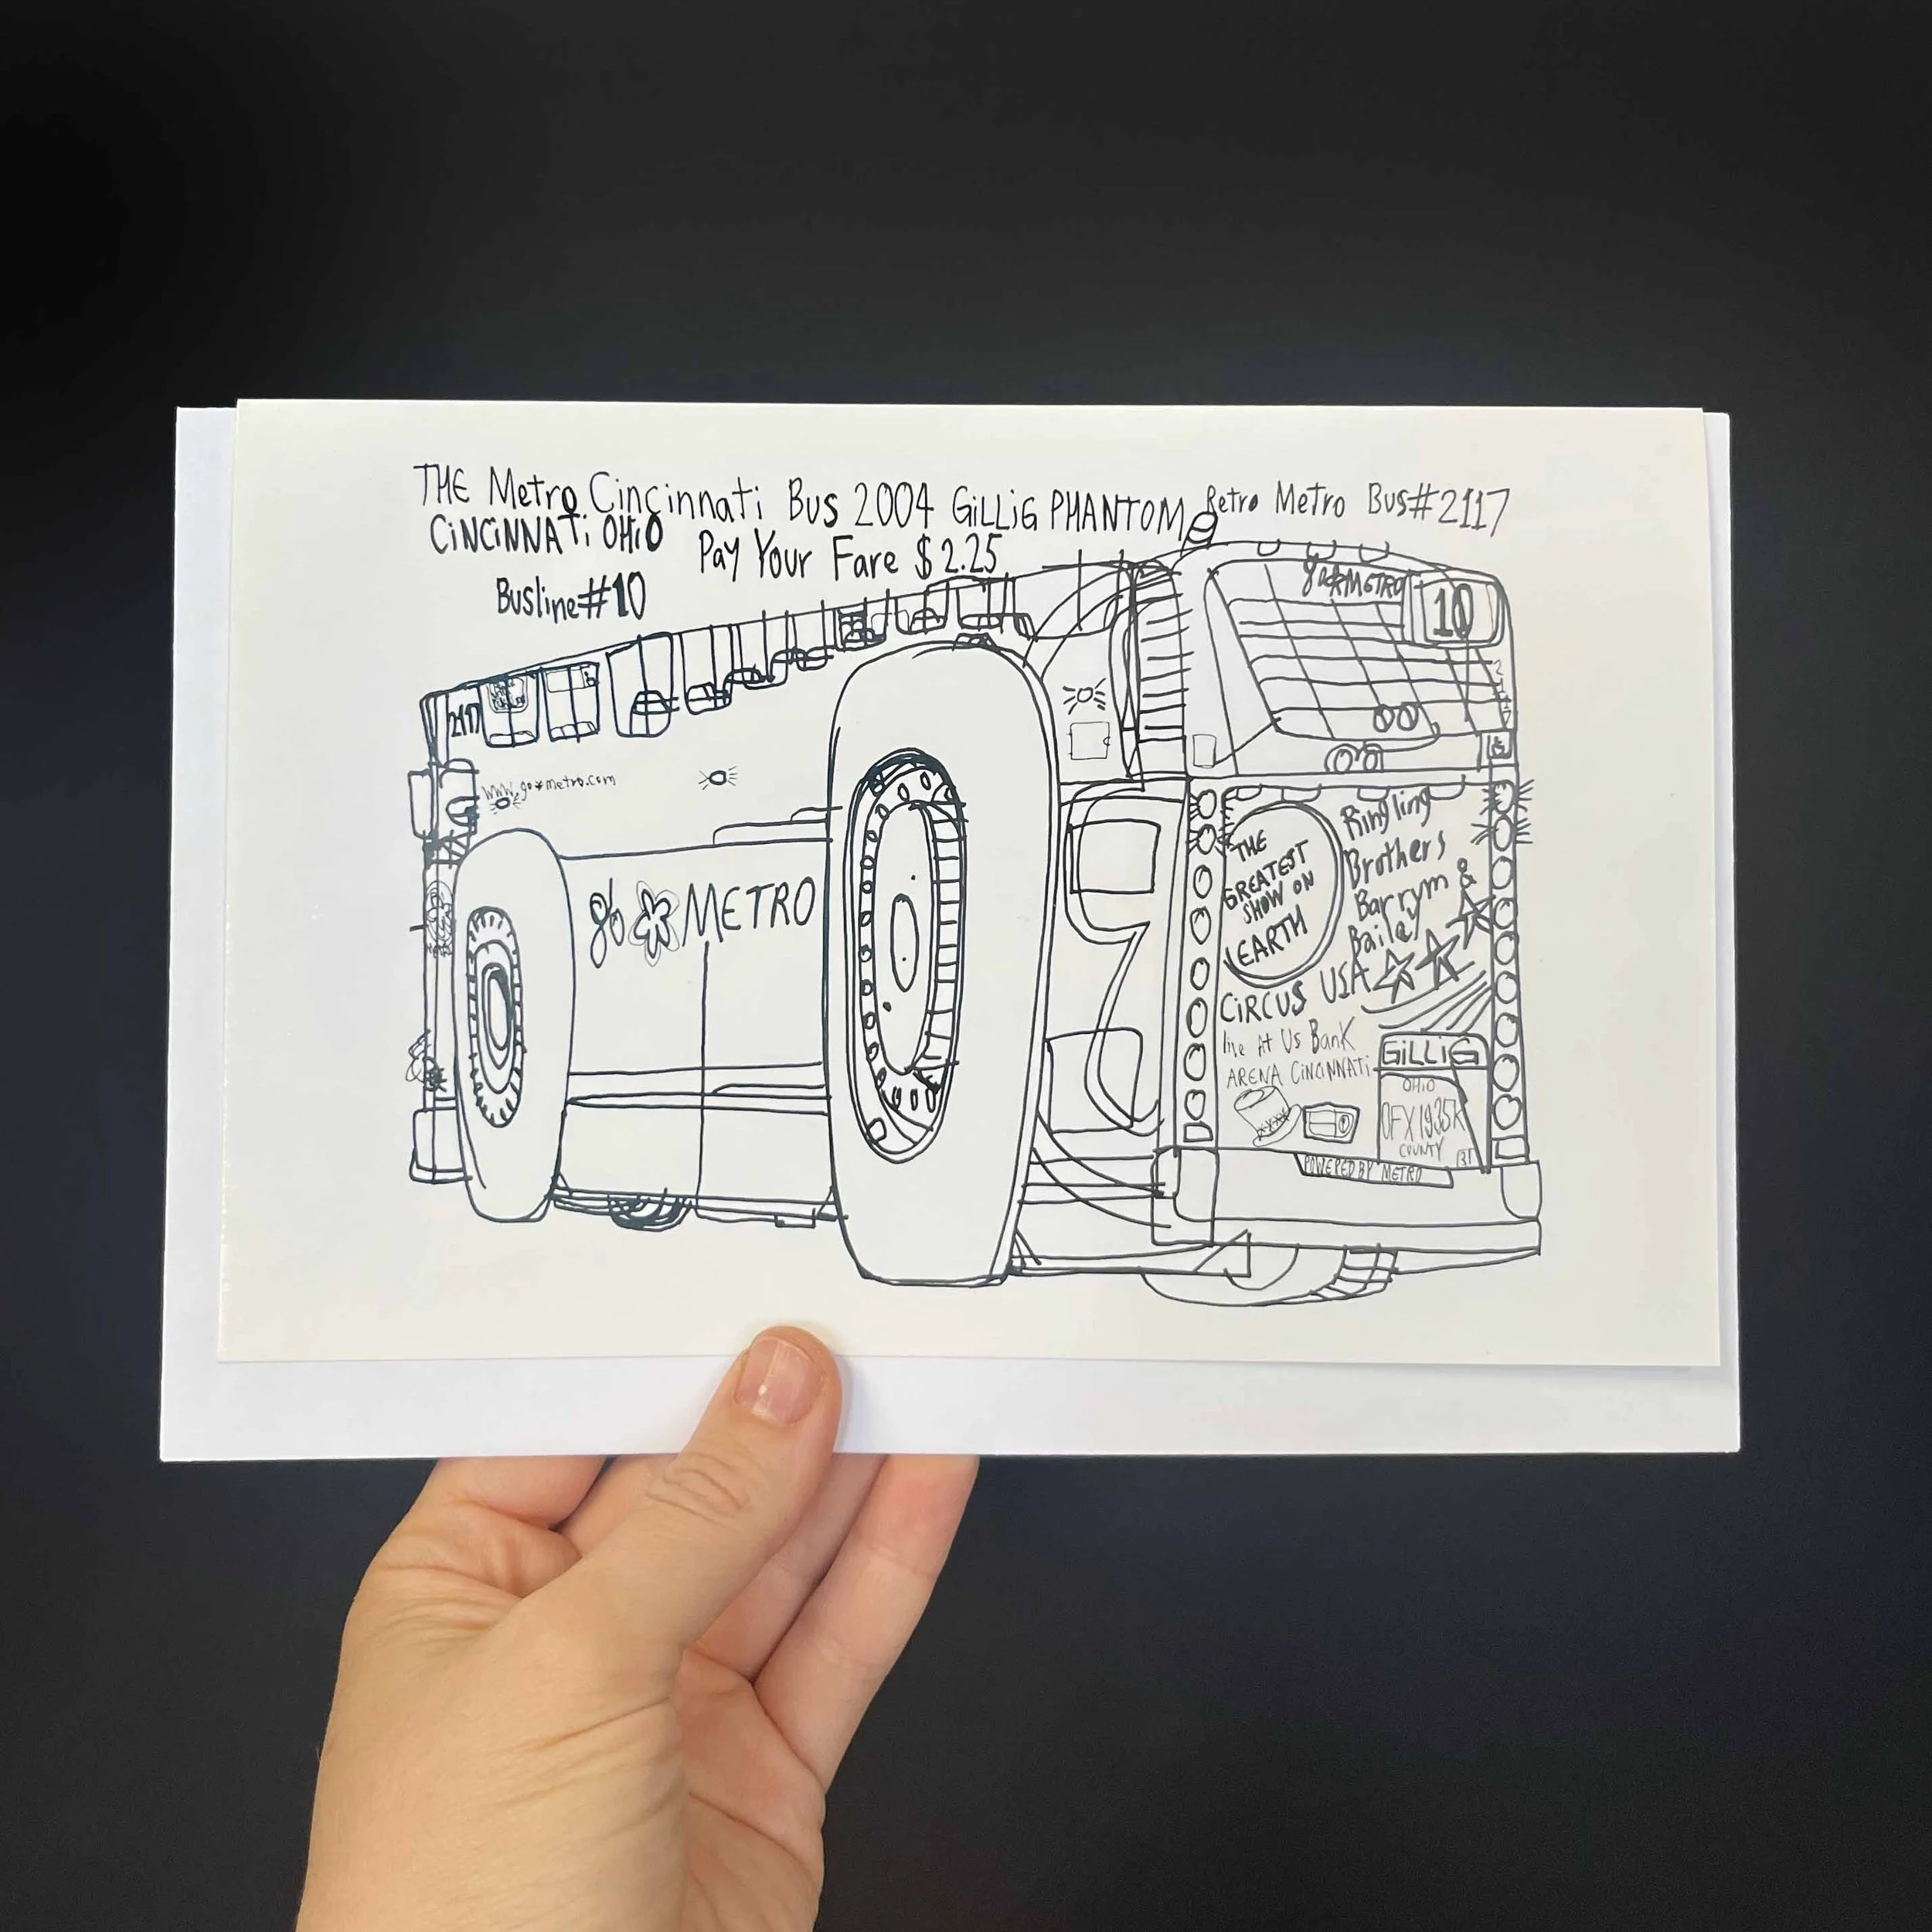 THE Metro Cincinnati Bus 2004 GiLLiG PHANTOM Retro Metro Bus#2117
CiNCiNNATi OHiO
Pay Your Fare $2.25
Busline#10
go*METRO
10
2117
2117
www.go*metro.com
go*METRO
THE
GREATEST
SHOW ON
EARTH
Ringling
Brothers
Barrym &
Bailey
CiRCUS USA
live At Us Bank
ARENA CiNCiNNATi
GiLLiG
OHiO
OFX1935K
COUNTY
31
POWERED BY METRO